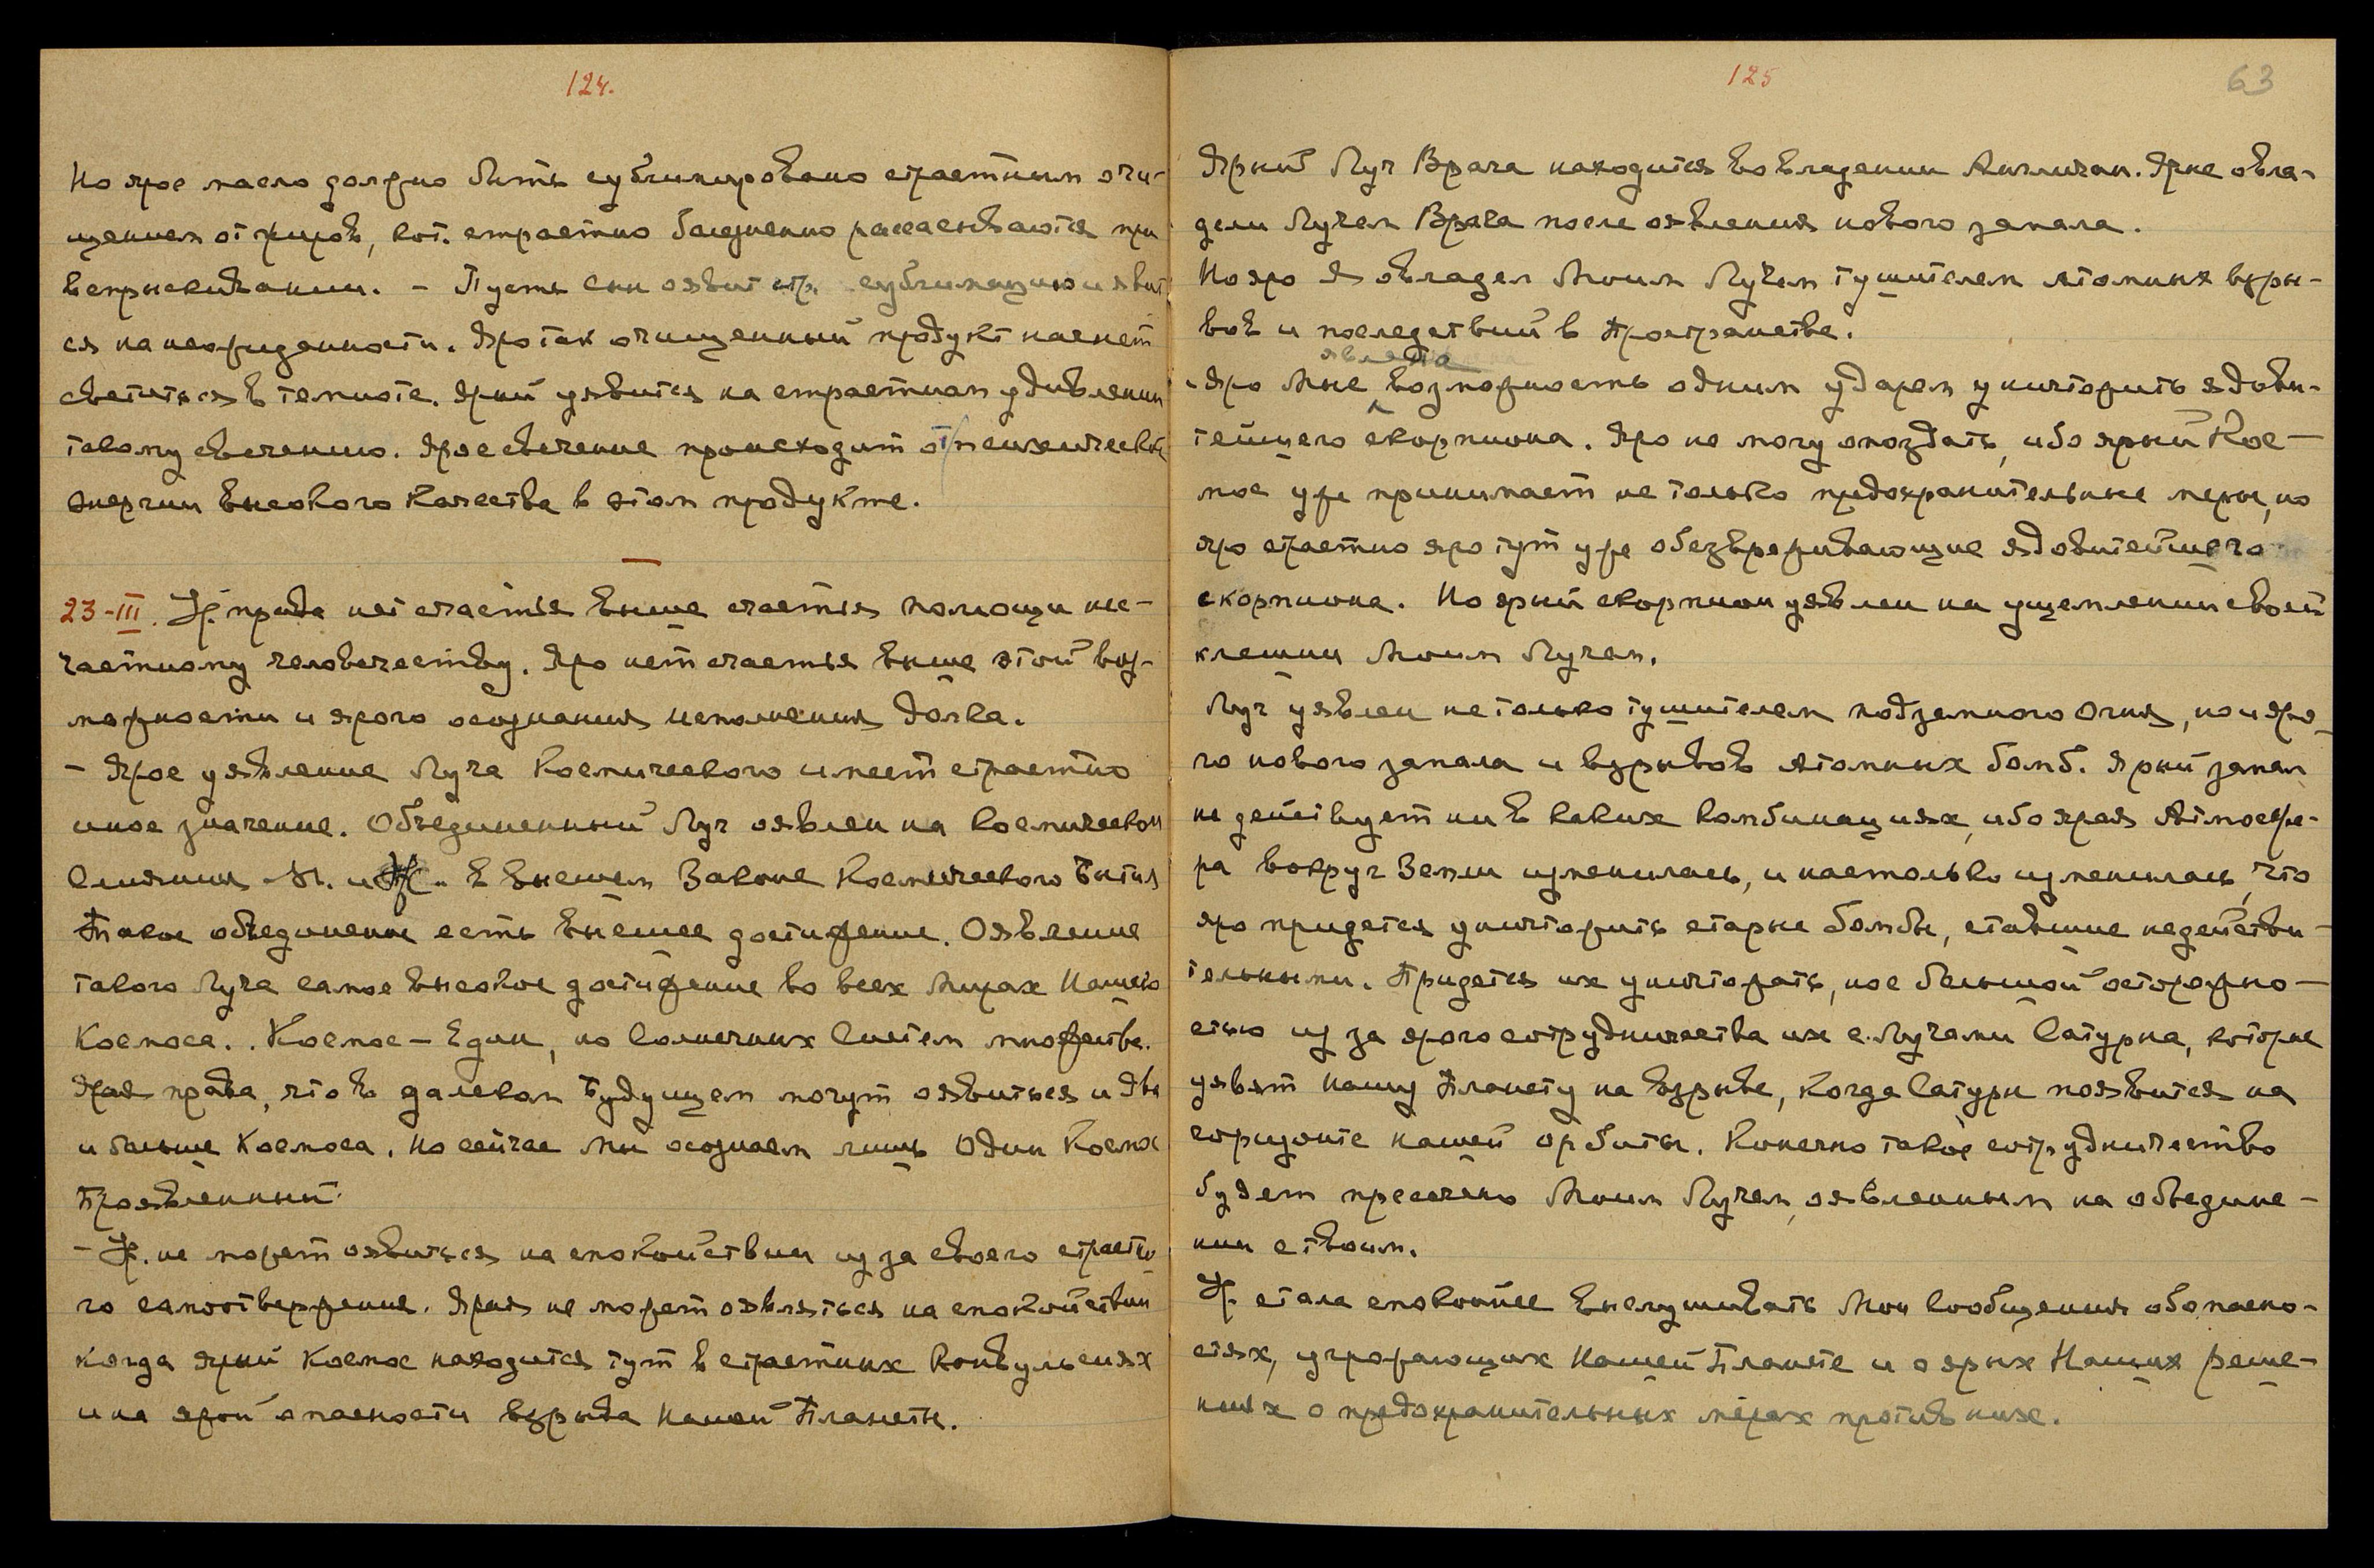 124.
Но ярое масло должно быть сублимировано страстным очи-
щением от жиров, кот. страстно болезненно рассасываются при
вспрыскивании. - Пусть сын оявит стр. сублимацию и явит
ся на неожиданности. Яро так очищенный продукт начнет
светиться в темноте. Ярый уявится на страстном удивлении
такому свечению. Ярое свечение происходит от психической
энергии высокого качества в этом продукте.
23-III. Ур. права нет счастья выше счастья помощи нес-
частному человечеству. Яро нет счастья выше этой воз-
можности и ярого осознания исполнения долга.
- Ярое уявление Луча Космического имеет страстно
иное значение. Объединенный Луч оявлен на космическом
Слиянии М. и Ур. в высшем Законе Космического Бытия
Такое объединение есть высшее достижение. Оявление
такого Луча самое высокое достижение во всех Мирах Нашего
Космоса. . Космос - Един, но Солнечных Систем множества.
Ярая права, что в далеком Будущем могут оявиться и два
и больше Космоса. Но сейчас мы осознаем лишь Один Космос
Проявленный.
- Ур. не может оявиться на спокойствии из за своего страстно
го самоотвержения. Ярая не может оявляться на спокойствии
когда ярый Космос находится тут в страстных конвульсиях
и на ярой опасности взрыва нашей Планеты.
125
63
Ярый Луч Врага находится во владении Англичан. Ярые овла-
дели Лучем Врага после оявления нового запала.
Но яро Я овладел Моим Лучем тушителем атомных взры-
вов и последствий в Пространстве.
явлена
Яро Мне возможность одним ударом уничтожить ядови-
тейшего скорпиона. Яро не могу опоздать, ибо ярый Кос-
мос уже принимает не только предохранительные меры, но
яро страстно яро тут уже обезвреживающие ядовитейшего
скорпиона. Но ярый скорпион уявлен на ущемлении своей
клешни Моим Лучем.
Луч уявлен не только тушителем подземного Огня, но и яро_
го нового запала и взрывов Атомных бомб. Ярый запал
не действует ни в каких комбинациях, ибо ярая Атмосфе-
ра вокруг Земли изменилась, и настолько изменилась, что
яро придется уничтожить старые бомбы, ставшие недействи-
тельными. Придется их уничтожать, но с большой осторожно-
стью из за ярого сотрудничества их с Лучами Сатурна, которые
уявят нашу Планету на взрыве, когда Сатурн появится на
горизонте нашей орбиты. Конечно такое сотрудничество
будет пресечено Моим Лучем, оявленным на объедине-
нии с твоим.
Ур. стала спокойнее выслушивать Мои сообщения об опасно-
стях, угрожающих Нашей Планете и о ярых Наших реше-
ниях о предохранительных мерах против них.